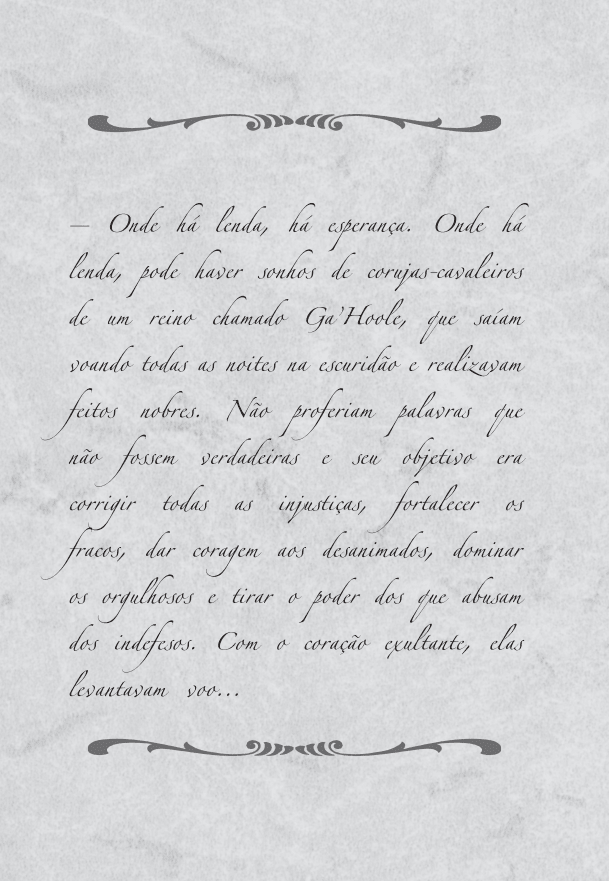 — Onde há lenda, há esperança. Onde há
lenda, pode haver sonhos de corujas-cavaleiros
de um reino chamado Ga'Hoole, que saíam
voando todas as noites na escuridão e realizavam
feitos nobres. Não proferiam palavras que
não fossem verdadeiras e seu objetivo era
corrigir todas as injustiças, fortalecer os
fracos, dar coragem aos desanimados, dominar
os orgulhosos e tirar o poder dos que abusam
dos indefesos. Com o coração exultante, elas
levantavam voo...